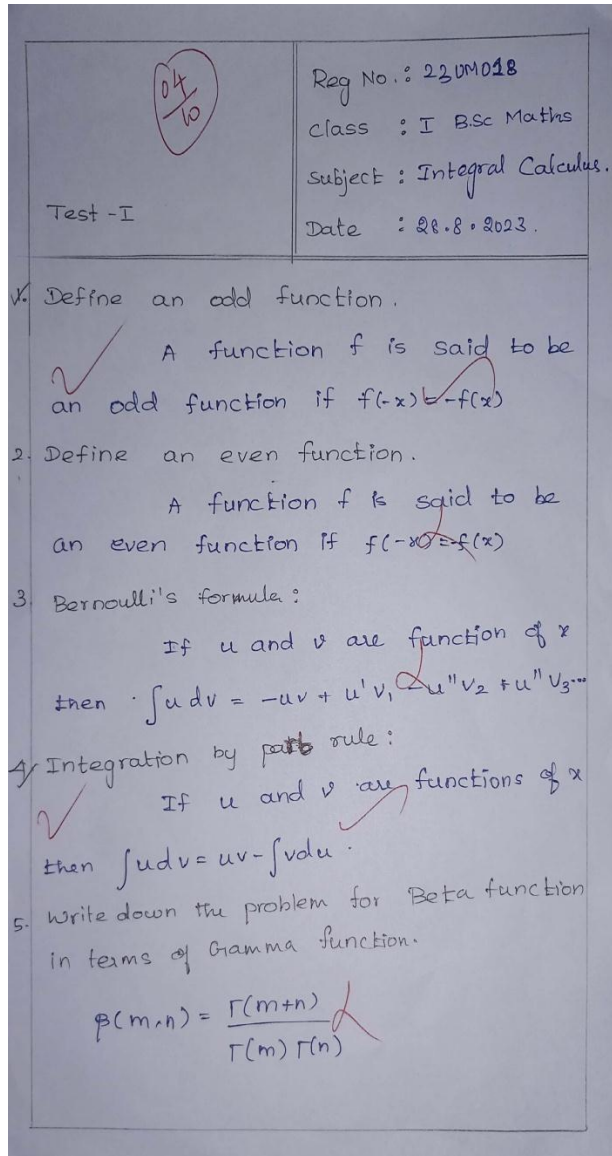 04/10
Reg No. : 23UM018
Class : I B.Sc Maths
Subject : Integral Calculus.
Test - I
Date : 28.8.2023.
1. Define an odd function.
A function f is said to be
an odd function if f(-x) = -f(x)
2. Define an even function.
A function f is said to be
an even function if f(-x) = -f(x)
3. Bernoulli's formula :
If u and v are function of x
then ∫u dv = -uv + u'v₁ - u"v₂ + u"v₃...
4. Integration by parts rule :
If u and v are functions of x
then ∫udv = uv - ∫vdu.
5. Write down the problem for Beta function
in terms of Gamma function.
β(m,n) = Γ(m+n) / Γ(m) Γ(n)